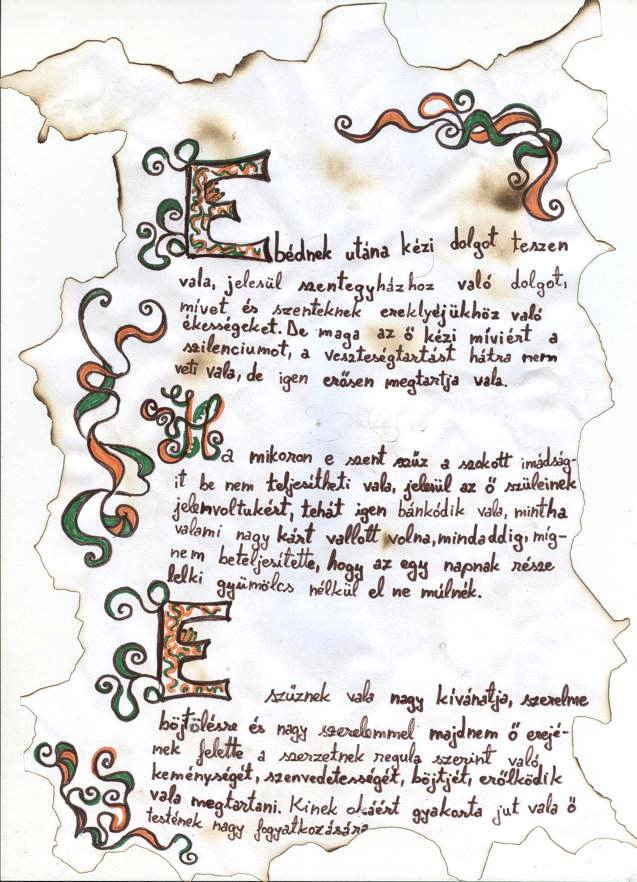 Ebédnek utána kézi dolgot teszen
vala, jelesül szentegyházhoz való dolgot,
mívet és szenteknek ereklyéjükhöz való
ékességeket. De maga az ő kézi míviért a
szilenciumot, a veszteségtartást hátra nem
veti vala, de igen erősen megtartja vala.
Ha mikoron e szent szűz a szokott imádság-
it be nem teljesítheti vala, jelesül az ő szüleinek
jelenvoltukért, tehát igen bánkódik vala, mintha
valami nagy kárt vallott volna, mindaddig, míg-
nem beteljesítette, hogy az egy napnak része
lelki gyümölcs nélkül el ne múlnék.
E szűznek vala nagy kívánatja, szerelme
böjtölésre és nagy szerelemmel majdnem ő erejé-
nek felette a szerzetnek regula szerint való,
keménységét, szenvedetességét, böjtjét, erőlködik
vala megtartani. Kinek okáért gyakorta jut vala ő
testének nagy fogyatkozására